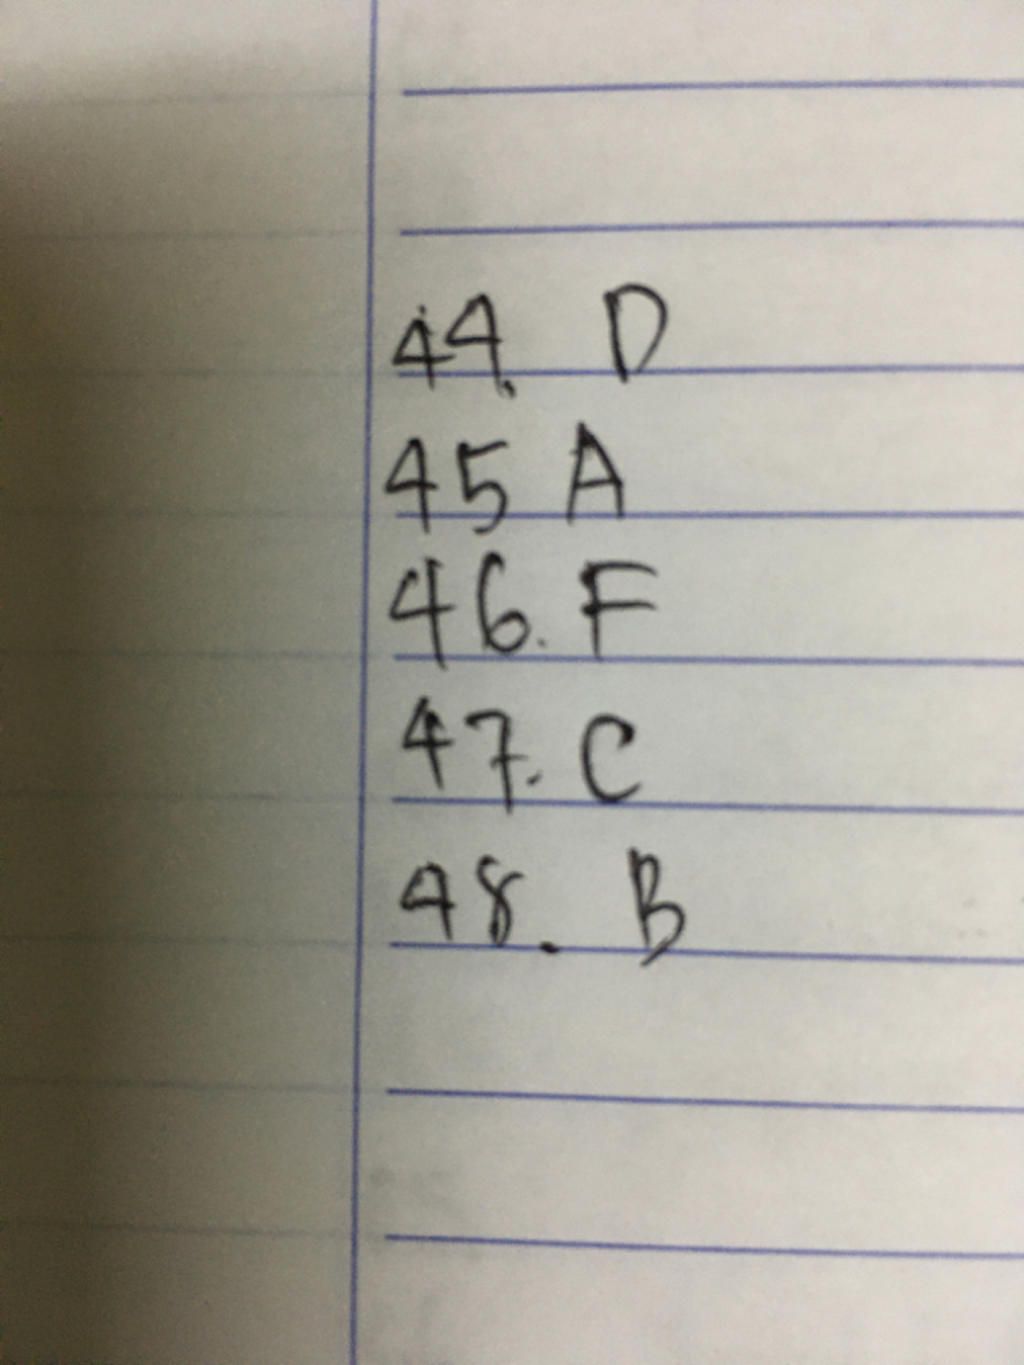 44. D
45 A
46. F
47. C
48. B